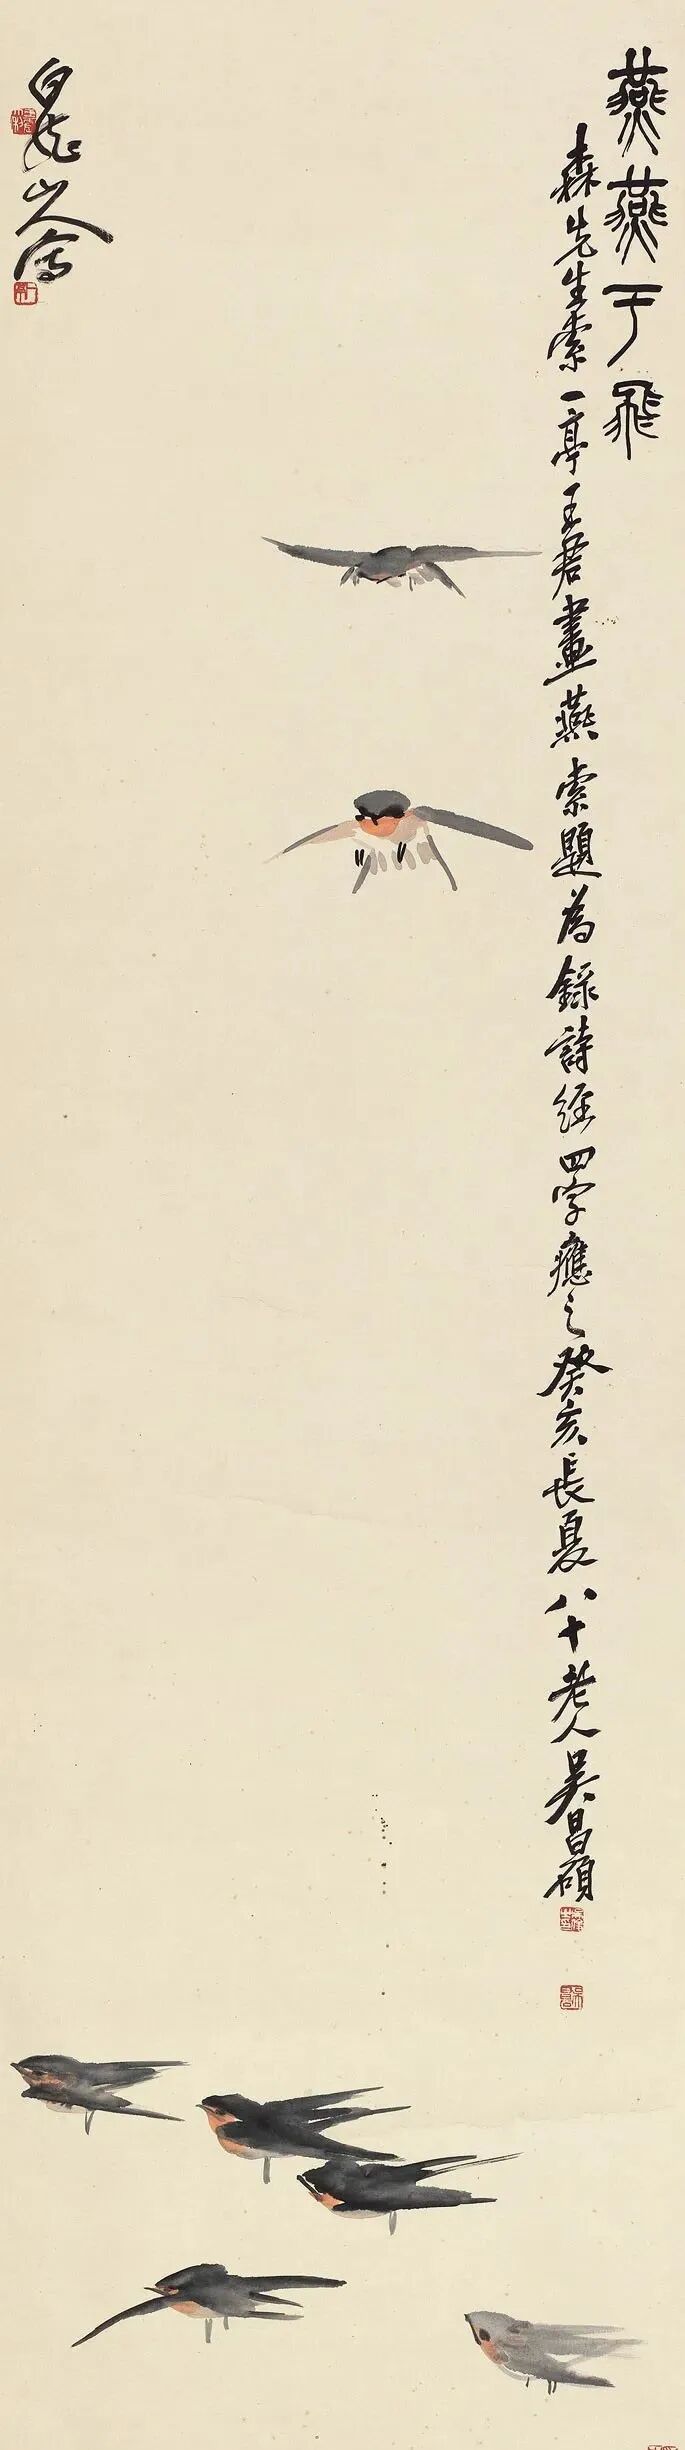 燕燕于飛
森先生索一亭王君畫燕索題為錄詩經四字應之癸亥長夏八十老人吳昌碩
白龍山人寫